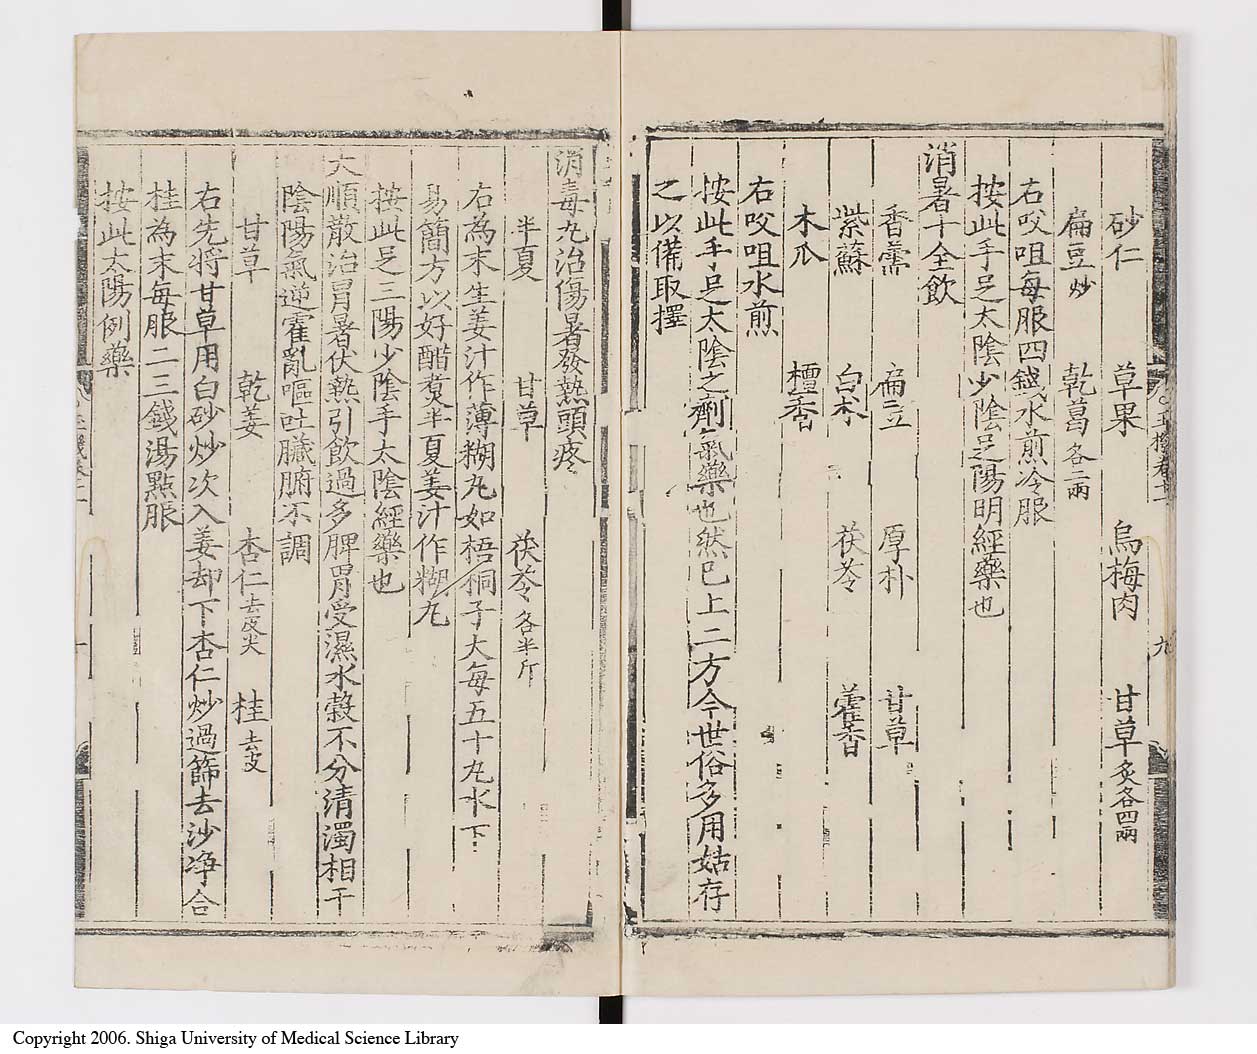 砂仁 草果 烏梅肉 甘草炙各四兩
扁豆炒 乾葛各二兩
右㕮咀每服四錢水煎冷服
按此手足太陰少陰足陽明經藥也
消暑十全飲
香薷 扁豆 厚朴 甘草
紫蘇 白朮 茯苓 藿香
木瓜 檀香
右㕮咀水煎
按此手足太陰之劑氣藥也然已上二方今世俗多用姑存
之以備取擇
消毒丸治傷暑發熱頭疼
半夏 甘草 茯苓各半斤
右為末生姜汁作薄糊丸如梧桐子大每五十丸水下
易簡方以好醋煑半夏姜汁作糊丸
按此足三陽少陰手太陰經藥也
大順散治冐暑伏熱引飲過多脾胃受濕水穀不分清濁相干
陰陽氣逆霍亂嘔吐臟腑不調
甘草 乾姜 杏仁去皮尖 桂去皮
右先將甘草用白砂炒次入姜却下杏仁炒過篩去沙净合
桂為末每服二三錢湯點服
按此太陽例藥
Copyright 2006. Shiga University of Medical Science Library